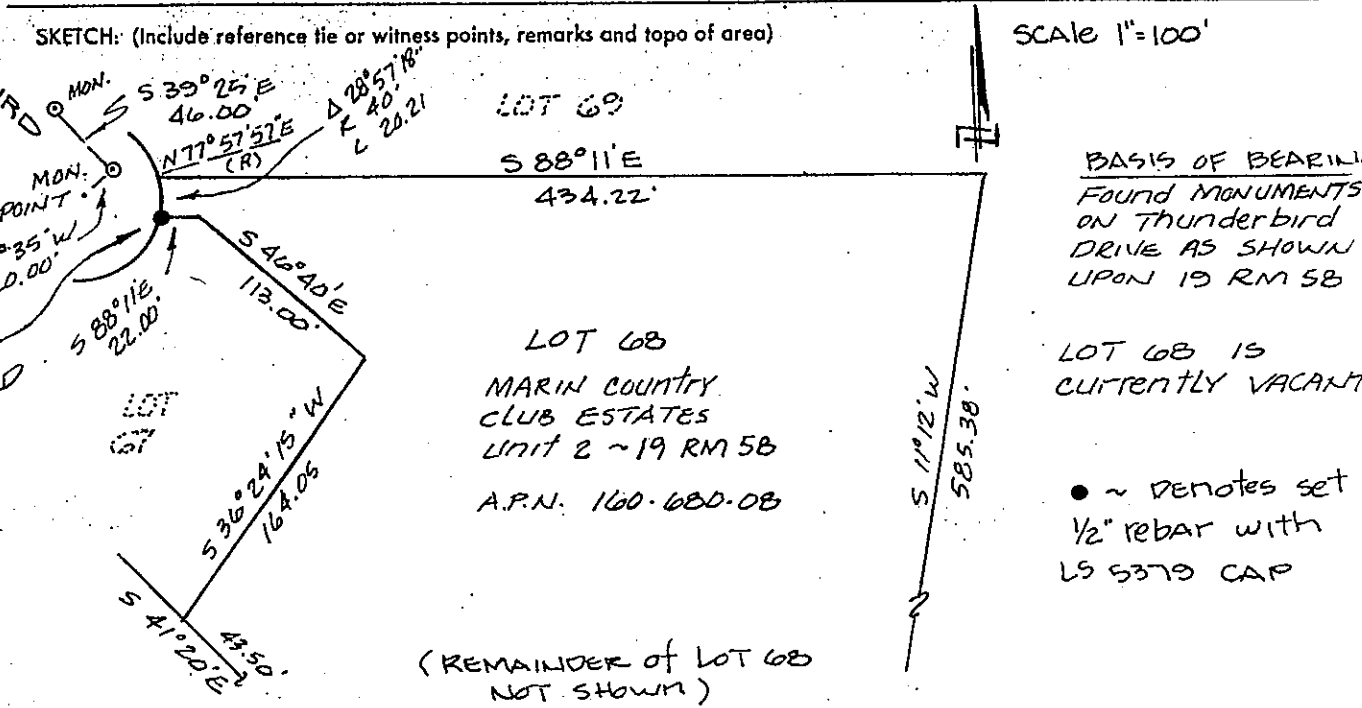 SKETCH: (Include reference tie or witness points, remarks and topo of area)
SCALE 1"=100'
MON.
S 39°25' E
46.00'
Δ 28°57'18"
R 40'
L 20.21
N 77°57'57" E
(R)
MON.
POINT
35' W
0.00'
LOT 69
S 88°11' E
434.22'
S 88°11' E
22.00'
S 46°40' E
113.00'
LOT
67
S 36°24'15" W
164.05
S 41°20' E
43.50'
LOT 68
MARIN COUNTRY
CLUB ESTATES
Unit 2 ~ 19 RM 58
A.P.N. 160-680-08
S 11°12' W
585.38'
(REMAINDER of LOT 68
NOT SHOWN)
BASIS OF BEARIN
FOUND MONUMENTS
ON Thunderbird
DRIVE AS SHOWN
UPON 19 RM 58
LOT 68 IS
CURRENTLY VACANT
● ~ DENOTES set
1/2" rebar with
LS 5379 CAP